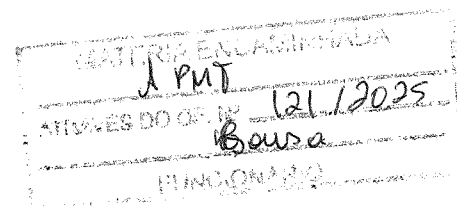 MATÉRIA ENCAMINHADA
À PMT
ATRAVÉS DO OF. Nº 121/2025
Sousa
FUNCIONÁRIO